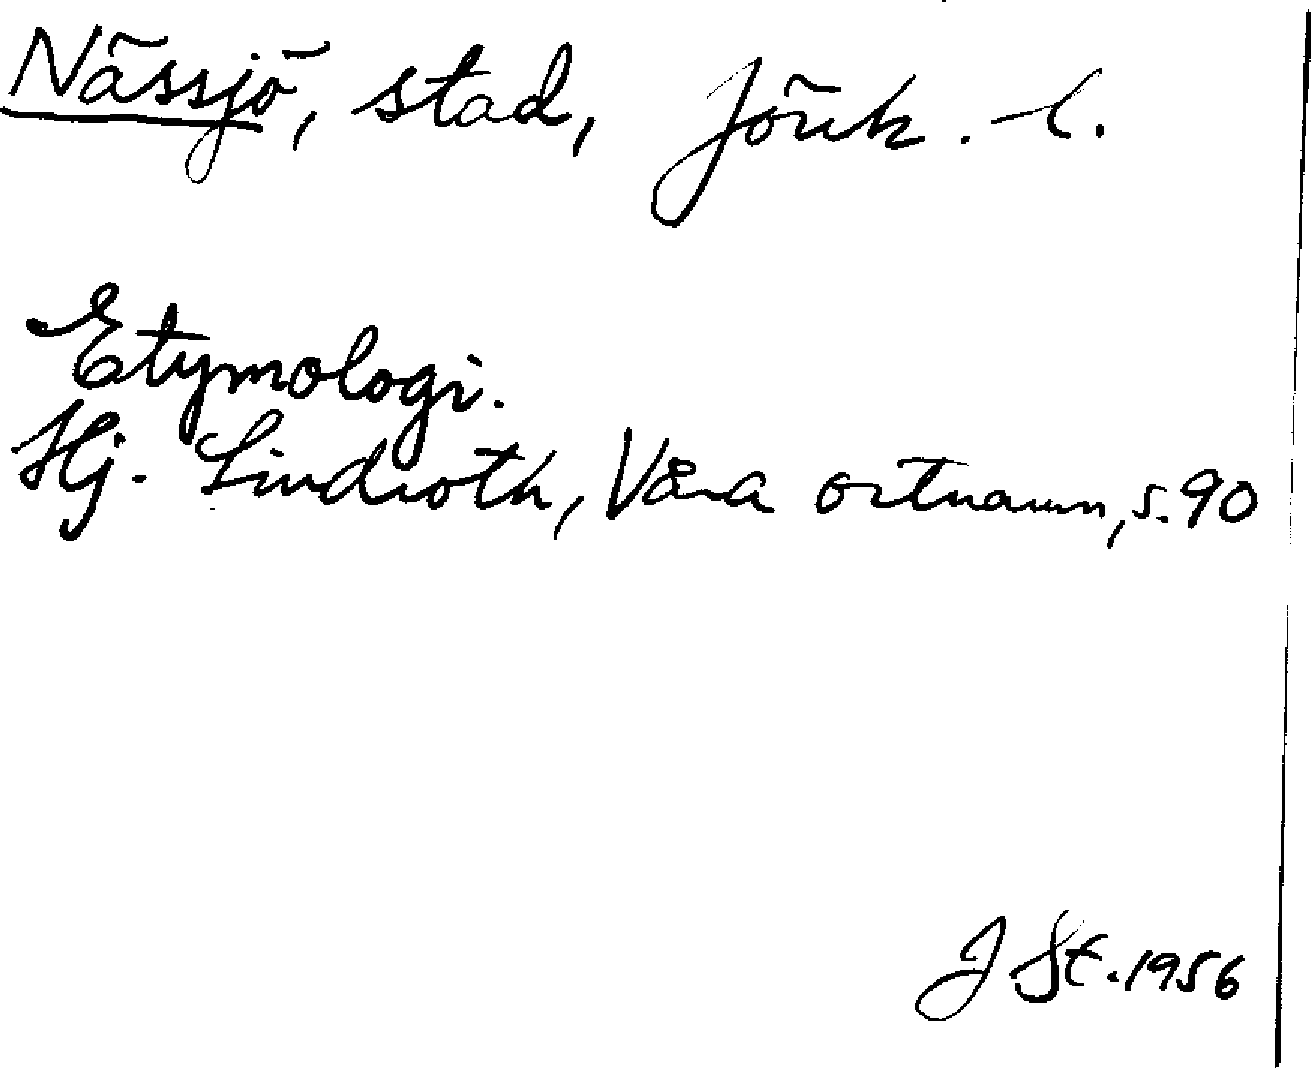 Nässjö, stad, Jönk. l.
Etymologi.
Hj. Lindroth, Våra ortnamn, s. 90
J St. 1956